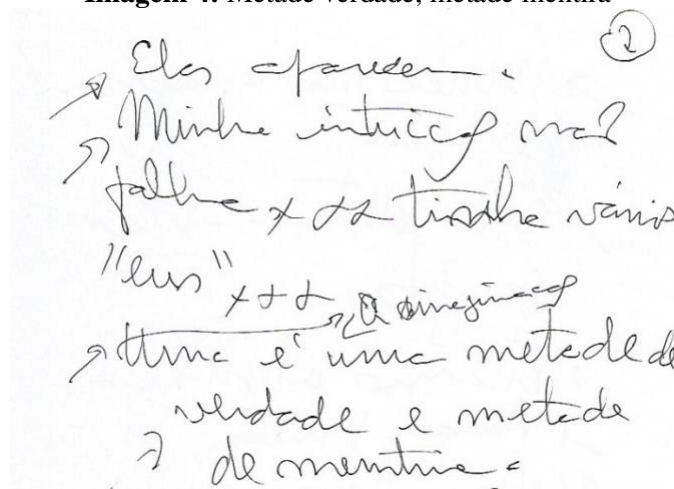 Imagem 4: Metade verdade, metade mentira
②
Elas aparecem.
Minha intuição não
falha x x x tinha vários
"eus" x x x a imaginação
Uma é uma metade de
verdade e metade
de mentira.